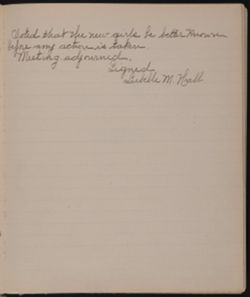 Voted that the new girls be better known
before any action is taken.
Meeting adjourned.
Signed
M. Hall